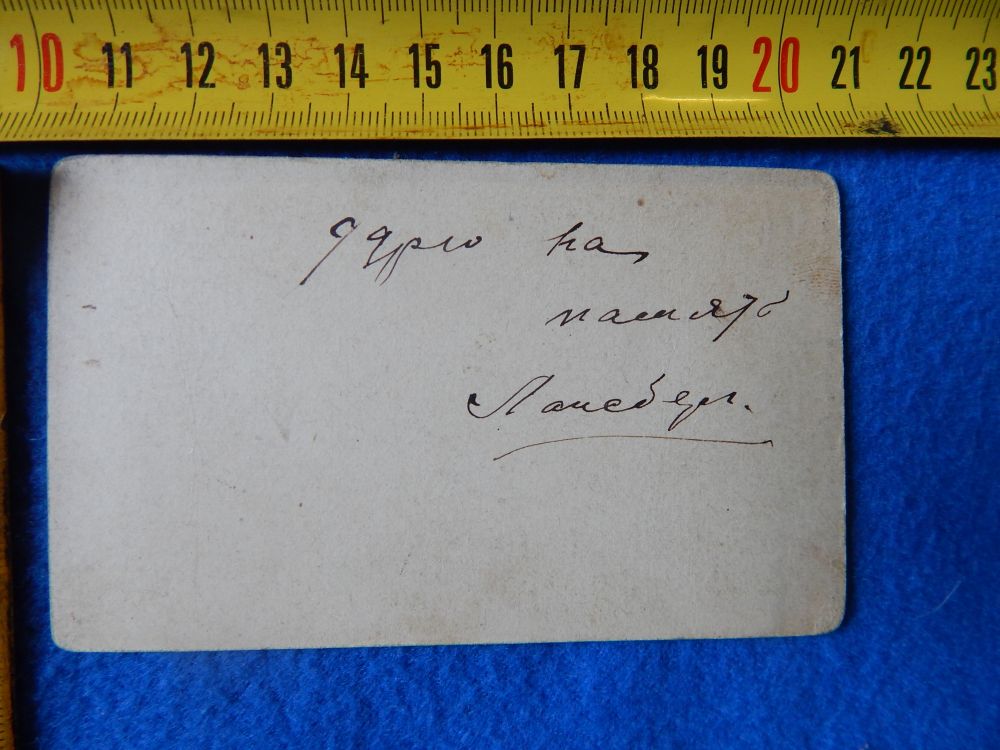 10 11 12 13 14 15 16 17 18 19 20 21 22 23
на
память
Лансберг.